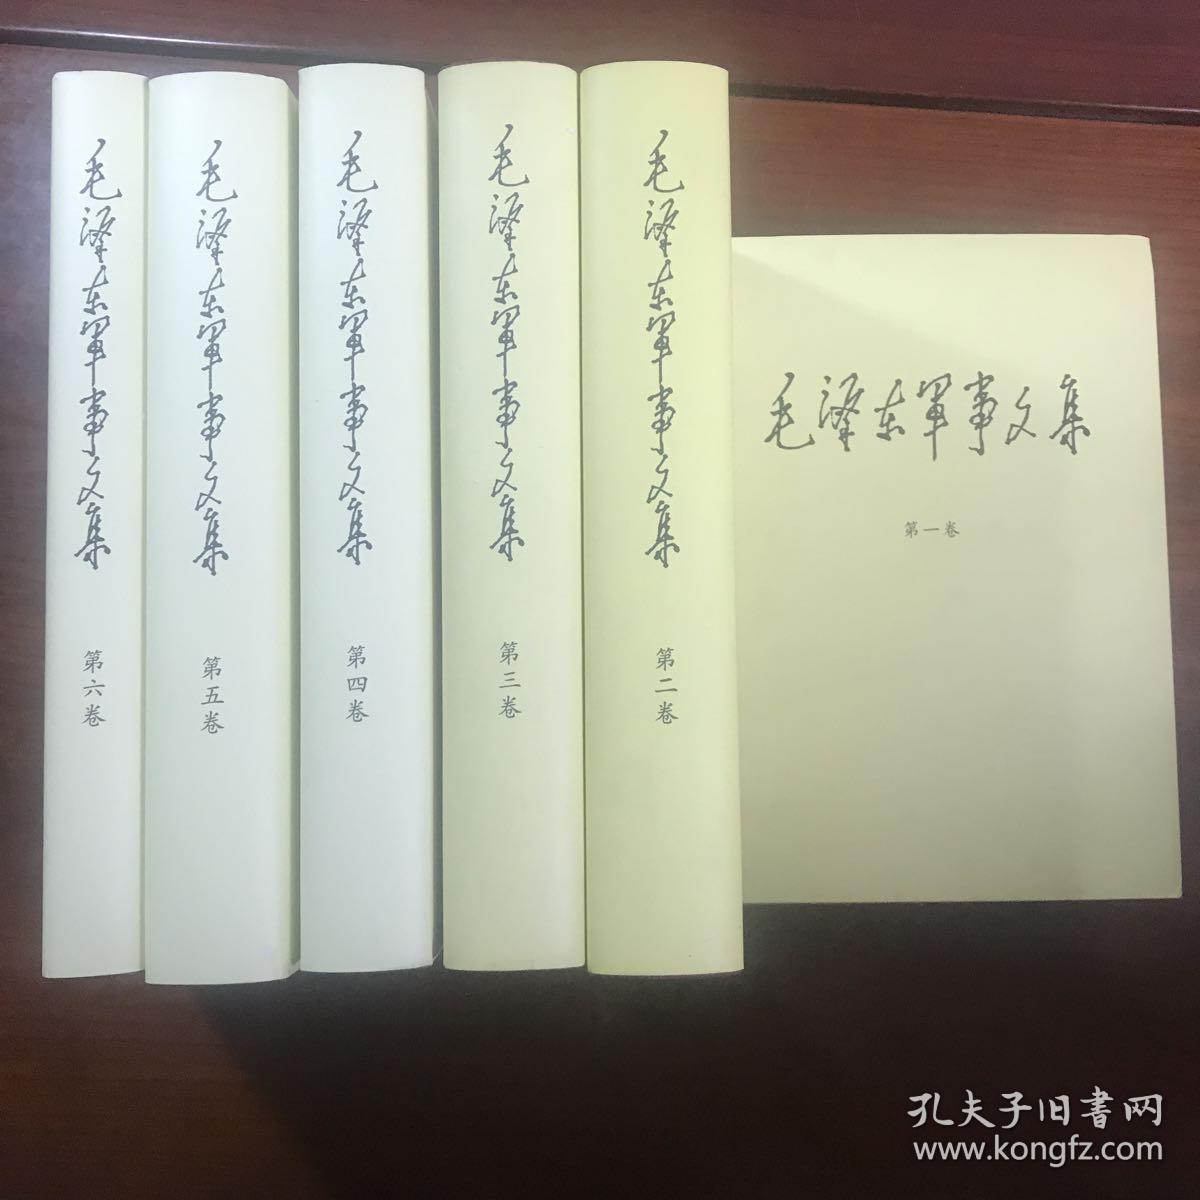 毛泽东軍事文集
第六卷
毛泽东軍事文集
第五卷
毛泽东軍事文集
第四卷
毛泽东軍事文集
第三卷
毛泽东軍事文集
第二卷
毛泽东軍事文集
第一卷
孔夫子旧書网
www.kongfz.com